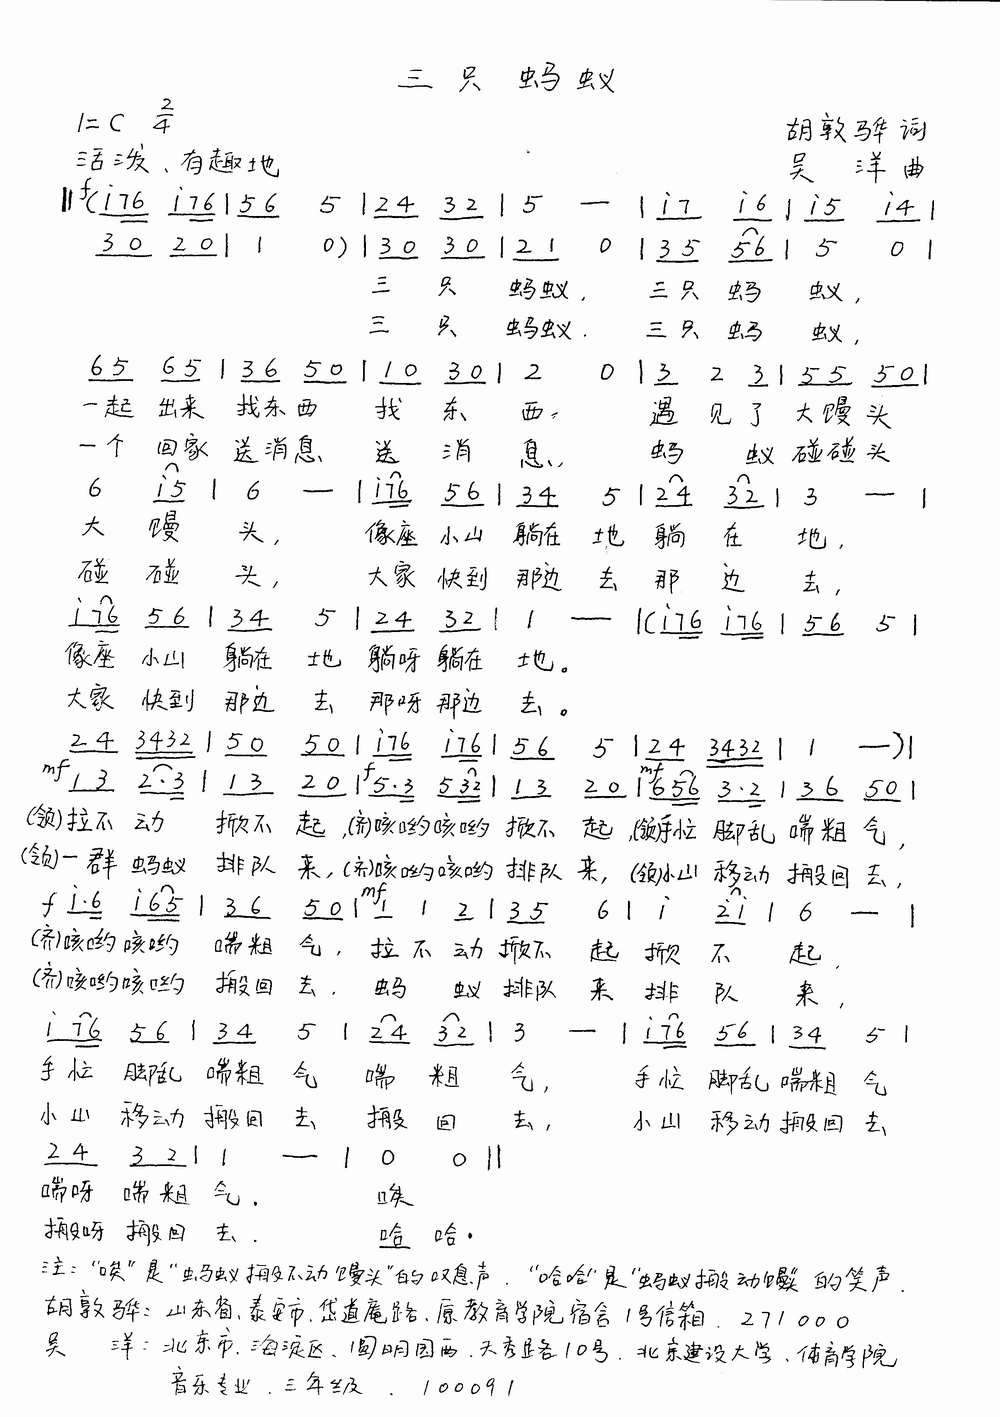 三只蚂蚁
1=C 2/4
胡敦骅 词
活泼、有趣地
吴 洋 曲
‖f(i76 i76 | 56 5 | 24 32 | 5 — | i7 i6 | i5 i4 |
30 20 | 1 0) | 30 30 | 21 0 | 35 56 | 5 0 |
三 只 蚂蚁, 三只 蚂 蚁,
三 只 蚂蚁. 三只 蚂 蚁,
65 65 | 36 50 | 10 30 | 2 0 | 3 2 3 | 55 50 |
一起 出来 找东西 找 东 西, 遇 见了 大馒头
一个 回家 送消息 送 消 息, 蚂 蚁 碰碰头
6 i5 | 6 — | i76 56 | 34 5 | 24 32 | 3 — |
大 馒 头, 像座 小山 躺在 地 躺 在 地,
碰 碰 头, 大家 快到 那边 去 那 边 去,
i76 56 | 34 5 | 24 32 | 1 — |(i76 i76 | 56 5 |
像座 小山 躺在 地 躺呀 躺在 地。
大家 快到 那边 去 那呀 那边 去。
24 3432 | 50 50 | i76 i76 | 56 5 | 24 3432 | 1 —)|
mf 13 2·3 | 13 20 | f 5·3 532 | 13 20 | mf 656 3·2 | 36 50 |
(领)拉不 动 掀不 起,(齐)咳哟咳哟 掀不 起,(领)手忙 脚乱 喘粗 气,
(领)一群 蚂蚁 排队 来,(齐)咳哟咳哟 排队 来,(领)小山 移动 搬回 去,
f i·6 i65 | 36 50 | mf 1 1 2 | 35 6 | i 2i | 6 — |
(齐)咳哟 咳哟 喘粗 气, 拉 不 动 掀不 起 掀 不 起,
(齐)咳哟咳哟 搬回 去. 蚂 蚁 排队 来 排 队 来,
i76 56 | 34 5 | 24 32 | 3 — | i76 56 | 34 5 |
手忙 脚乱 喘粗 气 喘 粗 气, 手忙 脚乱 喘粗 气
小山 移动 搬回 去 搬 回 去, 小山 移动 搬回 去
24 32 | 1 — | 0 0 ‖
喘呀 喘粗 气. 唉
搬呀 搬回 去. 哈 哈.
注:“唉”是“蚂蚁搬不动馒头”的叹息声.“哈哈”是“蚂蚁搬动馒头”的笑声.
胡敦骅:山东省、泰安市、岱道庵路、原教育学院宿舍1号信箱. 271000
吴 洋:北京市、海淀区、圆明园西、天秀路10号. 北京建设大学、体育学院
音乐专业. 三年级. 100091